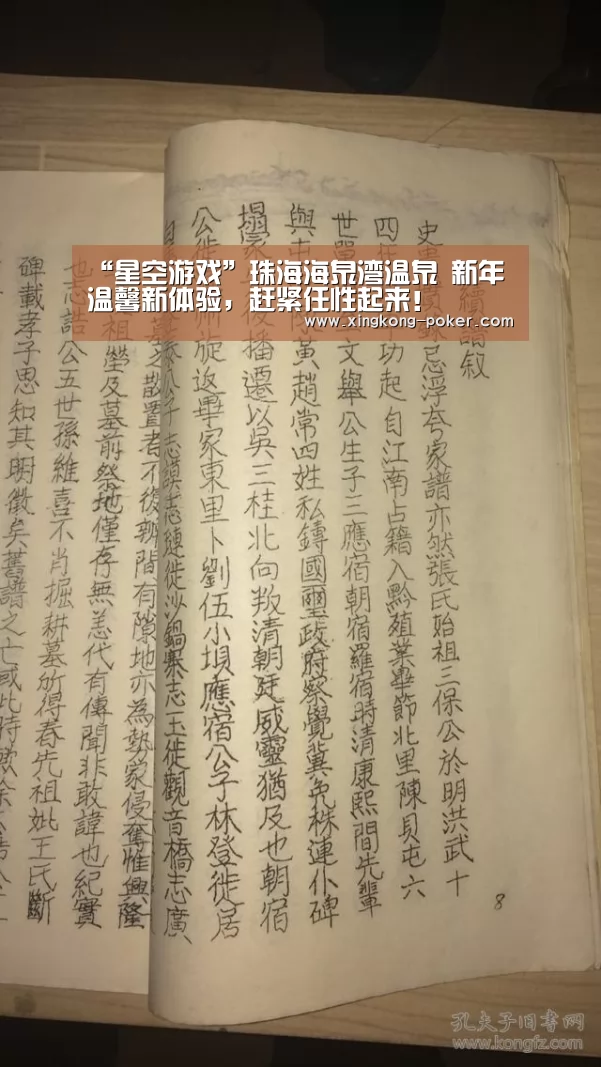 “星空游戏”珠海海泉湾温泉 新年
温馨新体验，赶紧任性起来！
www.xingkong-poker.com
續譜叙
史
忌浮夸家譜亦然張氏始祖三保公於明洪武十
四年
功起自江南占籍入黔殖業畢節北里陳貝屯六
世單
文舉公生子三應宿朝宿羅宿時清康熙間先輩
與屯
黃趙常四姓私鑄國璽政府察覺冀免株連仆碑
塌冢
後播遷以吳三桂北向叛清朝廷威靈猶及也朝宿
公徙
旋返畢家東里卜劉伍小壩應宿公子林登徙居
公于志謨志璉徙沙鍋寨志玉徙觀音橋志廣
墓之散置者不復辨間有隙地亦為勢家侵奪惟興隆
祖塋及墓前祭地僅存無恙代有傳聞非敢諱也紀實
也志誥公五世孫維喜不肖掘耕墓所得春先祖妣王氏斷
碑載孝子思知其明徵矣舊譜之亡或此時歟
8
孔夫子旧书网
www.kongfz.com